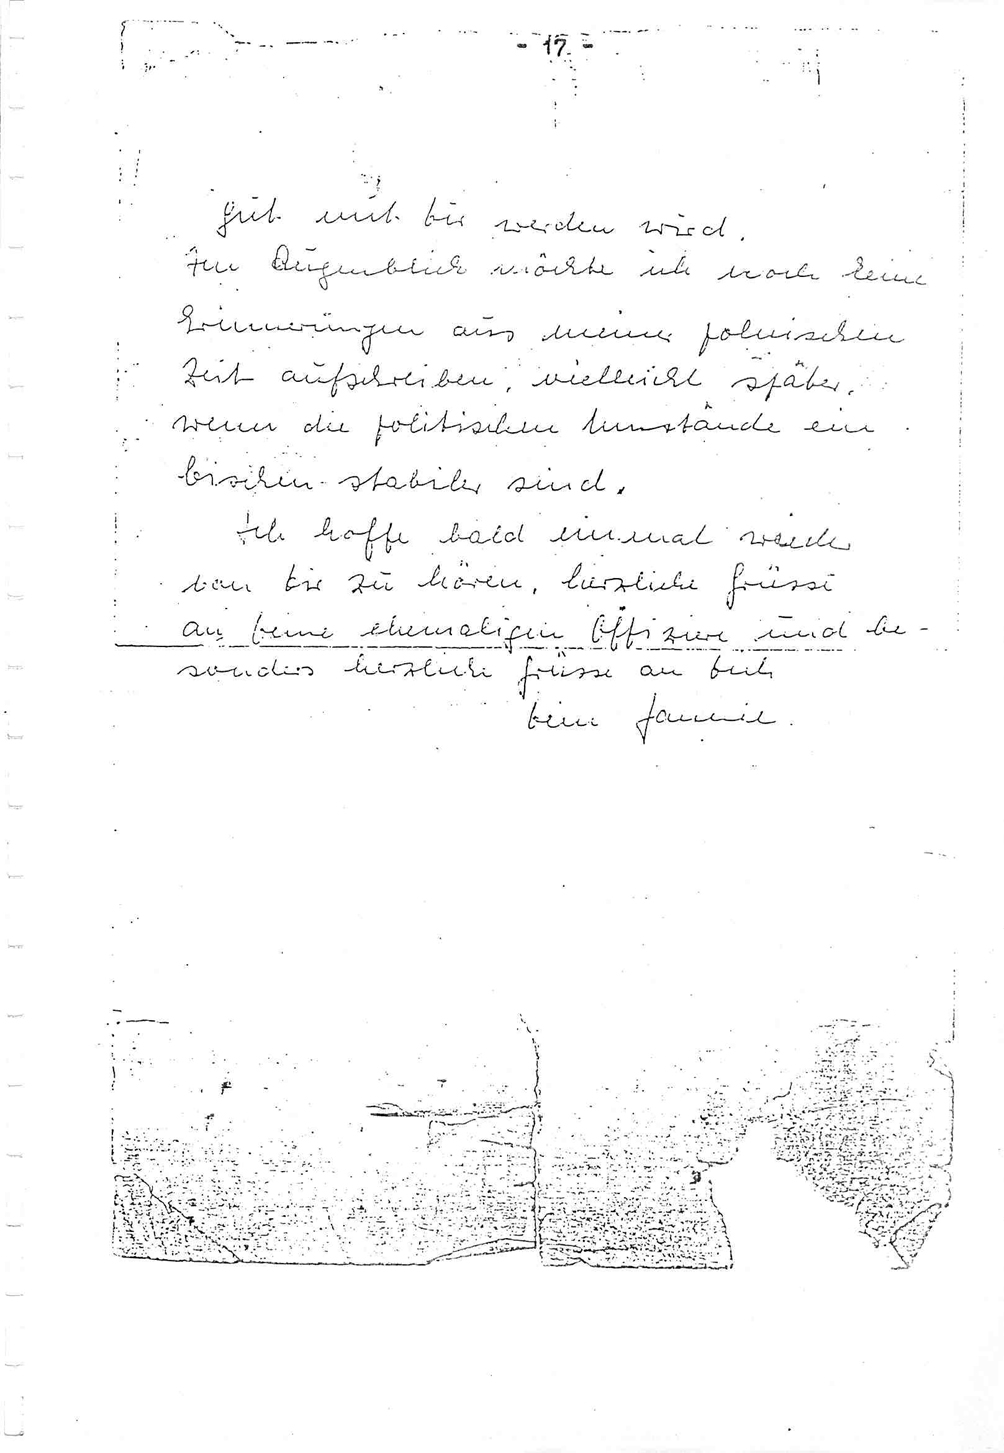 - 17 -
gut mit dir werden wird.
Im Augenblick möchte ich noch keine
Erinnerungen aus meiner polnischen
Zeit aufschreiben, vielleicht später,
wenn die politischen Umstände ein
bischen stabiler sind.
Ich hoffe bald einmal wieder
von dir zu hören, herzliche Grüsse
an deine ehemaligen Offiziere und be-
sonders herzliche Grüsse an dich
dein